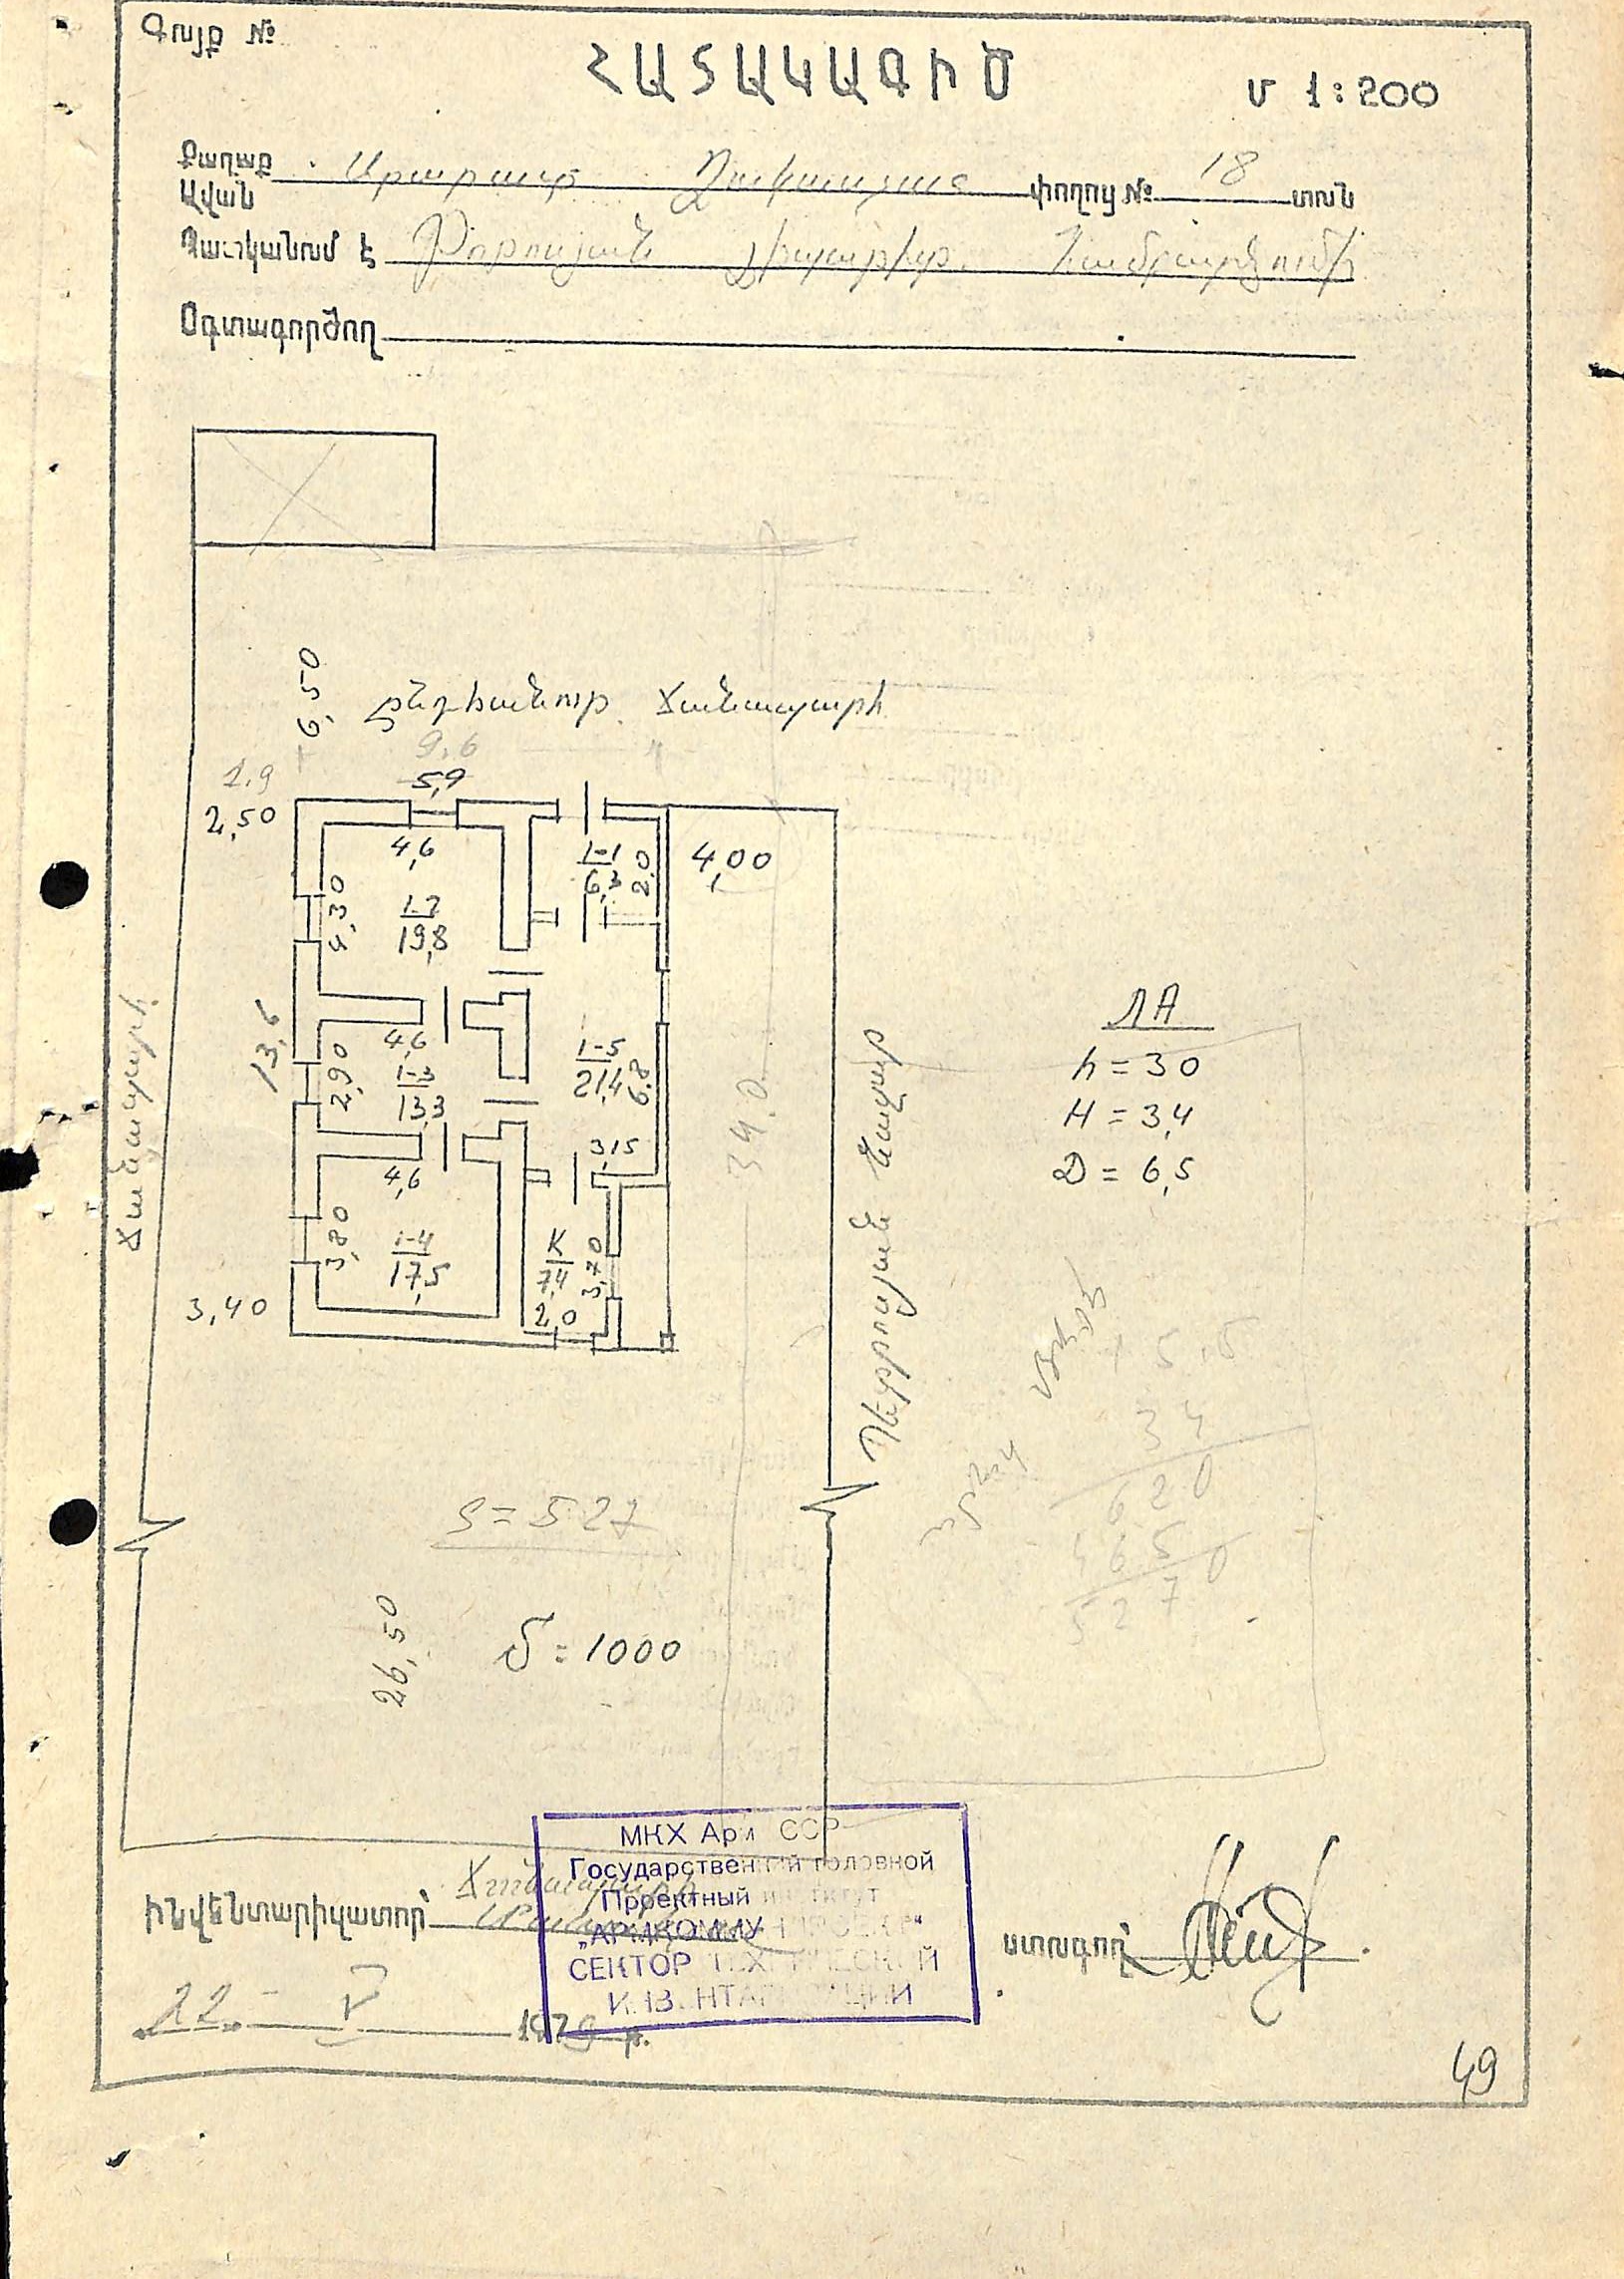 Գույք №
ՀԱՏԱԿԱԳԻԾ
Մ 1:200
Քաղաք
Ավան
Արարատ փողոց № 18 տուն
Պատկանում է Թորոսյան
Օգտագործող
6,50
Ընդհանուր ճանապարհ
9.6
5,9
1.9
2,50
4,6
4,30
1-2
19,8
1-1
6,3
2.0
4,00
ճանապարհ
13,6
4,6
2,90
1-3
13,3
1-5
21,4
6.8
3,15
34.0
ЛА
h = 30
H = 3,4
Д = 6,5
4,6
3,80
1-4
17,5
К
7,4
3,70
2,0
3,40
Պետրոսյան
5,5
34
620
465
5270
S = 527
26,50
Տ = 1000
МКХ Арм ССР
Государственный головной
Проектный институт
СЕКТОР ТЕХНИЧЕСКОЙ
ИНВЕНТАРИЗАЦИИ
ճանապարհ
ինվենտարիզատոր՝
ստուգող՝
22 - V 1979 թ.
49